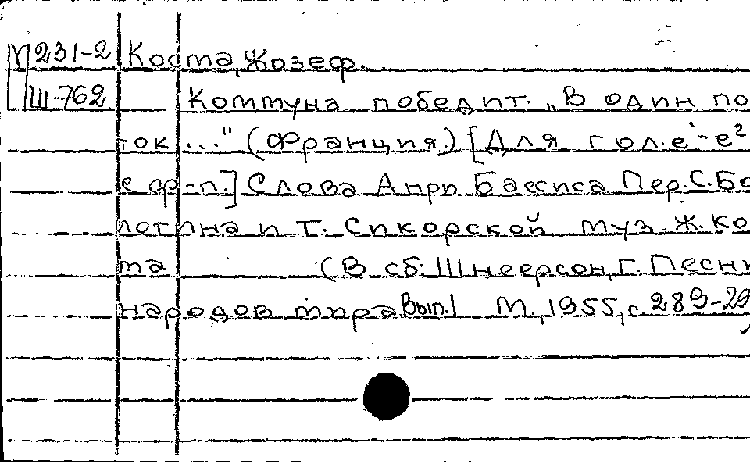 М 231-2 Коста, Жозеф.
Ш-762 Коммуна победит. "В один по
ток ..." (Франция.) [Для гол. е¹-е²
с фр-п.] Слова Анри Бассиса Пер. С. Бо
лотина и Т. Сикорской муз. Ж. Кос
та (В сб.: Шнеерсон, Г. Песни
народов мира Вып. 1 М., 1955, с. 289-29